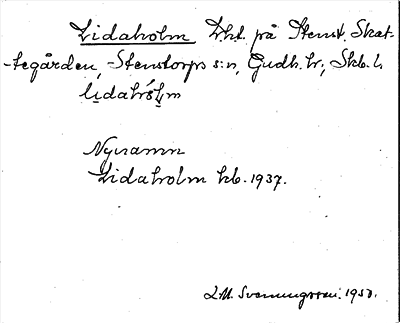 Lidaholm Lht. på Stenst. Skat-
-tegården, Stenstorps s:n, Gudh. hr, Skb. l.
Nynamn
Lidaholm kb. 1937.
L.M. Svenungsson. 1950.